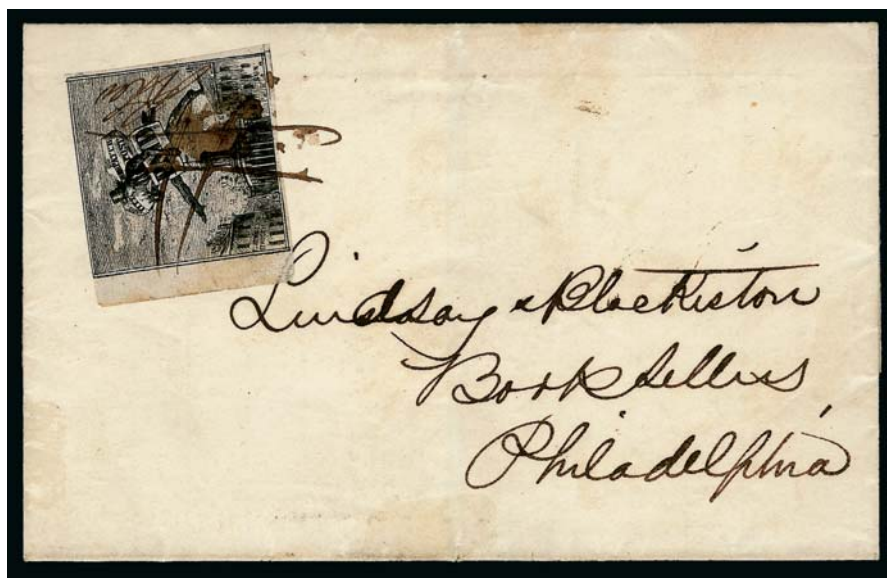 Lindsay & Blackiston
Book Sellers
Philadelphia